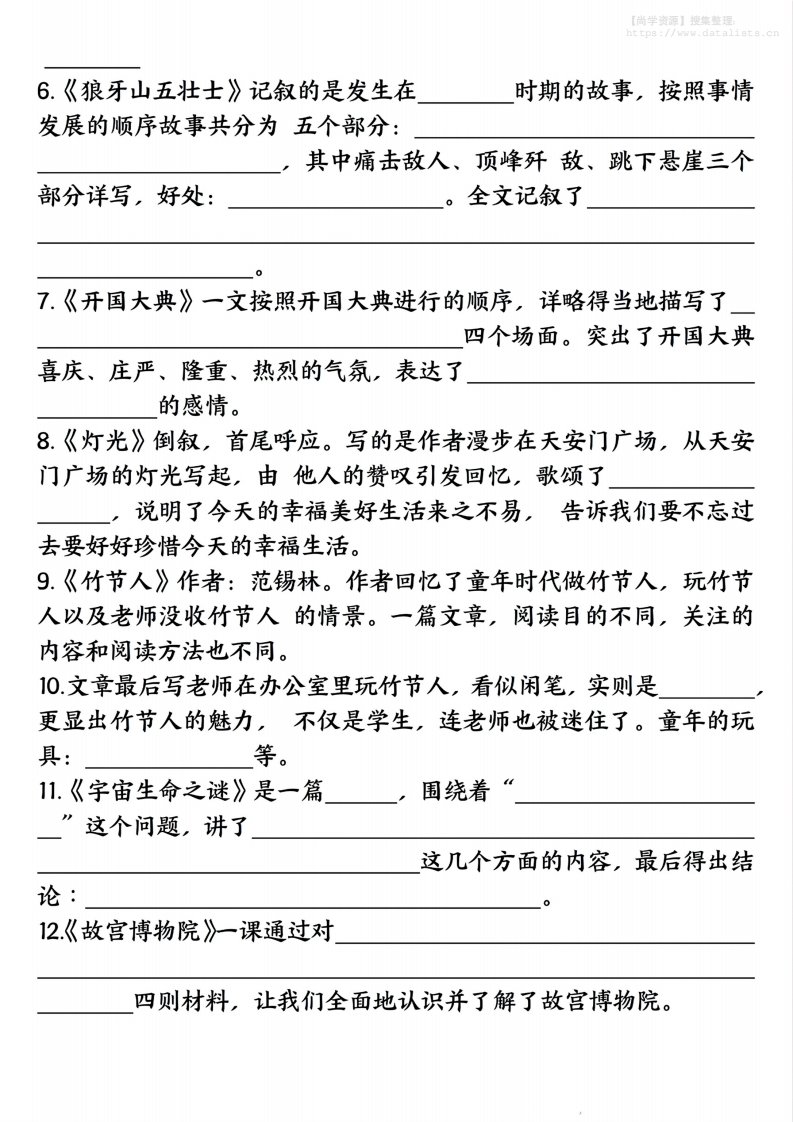 【尚学资源】搜集整理:
https://www.dataliste.cn
________
6.《狼牙山五壮士》记叙的是发生在________时期的故事，按照事情
发展的顺序故事共分为 五个部分：____________________________
____________________，其中痛击敌人、顶峰歼 敌、跳下悬崖三个
部分详写，好处：__________________。全文记叙了______________
____________________________________________________________
__________________。
7.《开国大典》一文按照开国大典进行的顺序，详略得当地描写了__
____________________________________四个场面。突出了开国大典
喜庆、庄严、隆重、热烈的气氛，表达了________________________
__________的感情。
8.《灯光》倒叙，首尾呼应。写的是作者漫步在天安门广场，从天安
门广场的灯光写起，由 他人的赞叹引发回忆，歌颂了____________
______，说明了今天的幸福美好生活来之不易， 告诉我们要不忘过
去要好好珍惜今天的幸福生活。
9.《竹节人》作者：范锡林。作者回忆了童年时代做竹节人，玩竹节
人以及老师没收竹节人 的情景。一篇文章，阅读目的不同，关注的
内容和阅读方法也不同。
10.文章最后写老师在办公室里玩竹节人，看似闲笔，实则是________，
更显出竹节人的魅力， 不仅是学生，连老师也被迷住了。童年的玩
具：______________等。
11.《宇宙生命之谜》是一篇______，围绕着“____________________
__”这个问题，讲了__________________________________________
________________________________这几个方面的内容，最后得出结
论：______________________________________。
12.《故宫博物院》一课通过对___________________________________
____________________________________________________________
________四则材料，让我们全面地认识并了解了故宫博物院。